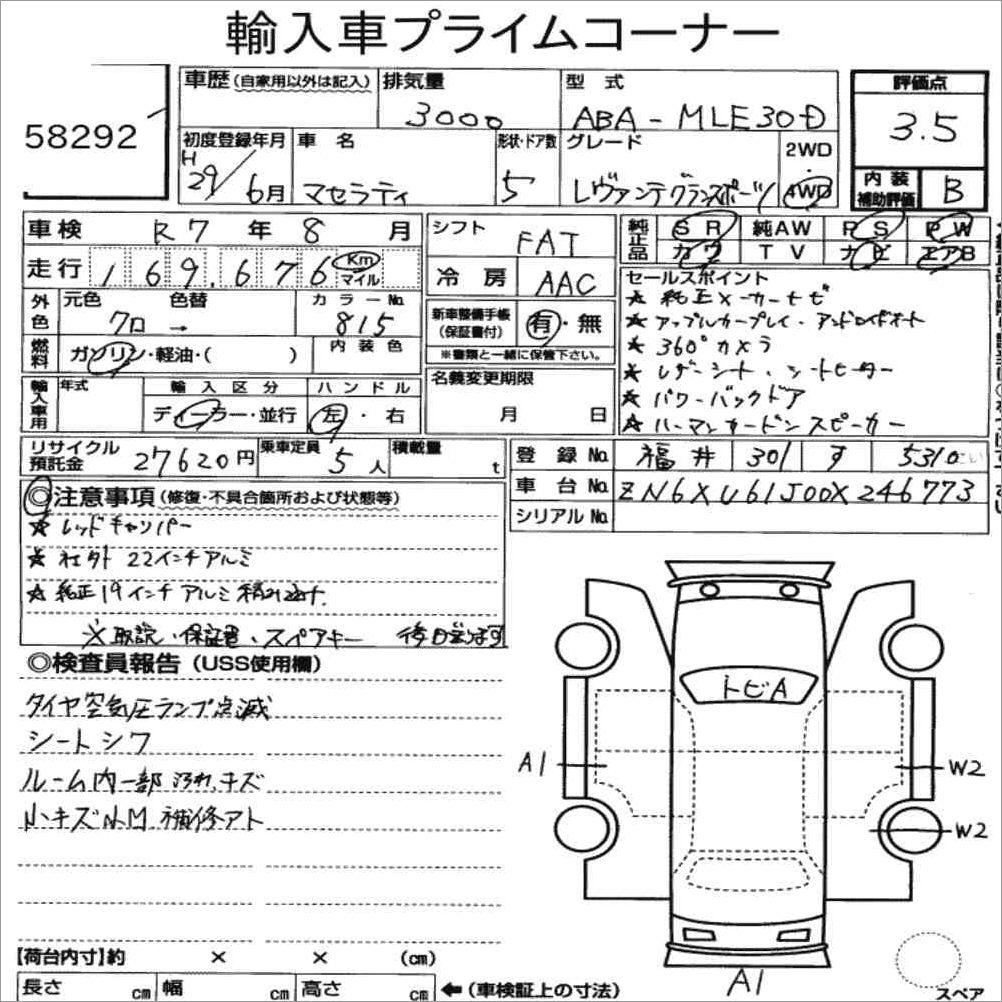 輸入車プライムコーナー
58292
車歴(自家用以外は記入)
排気量 3000
型式 ABA-MLE30D
評価点 3.5
内装補助評価 B
初度登録年月 H 29/6月
車名 マセラティ
形状・ドア数 5
グレード レヴァンテグランスポーツ
2WD 4WD
車検 R7年8月
走行 169,676 Km マイル
シフト FAT
冷房 AAC
純正品 SR 純AW PS PW
カワ TV ナビ エアB
外色 元色 クロ → 色替 カラーNo. 815
燃料 ガソリン・軽油・( ) 内装色
新車整備手帳(保証書付) 有・無
※書類と一緒に保管下さい。
名義変更期限 月 日
輸入車用 年式 輸入区分 ディーラー・並行 ハンドル 左・右
セールスポイント
★ 純正メーカーナビ
★ アップルカープレイ・アンドロイドオート
★ 360°カメラ
★ レザーシート・シートヒーター
★ パワーバックドア
★ ハーマンカードンスピーカー
リサイクル預託金 27620円
乗車定員 5人
積載量 t
登録No. 福井 301 す 5310
車台No. ZN6XU61J00X246773
シリアルNo.
◎注意事項(修復・不具合箇所および状態等)
★ レッドキャリパー
★ 社外 22インチアルミ
★ 純正19インチアルミ積み込み
※取説・保証書・スペアキー 後日
◎検査員報告(USS使用欄)
タイヤ空気圧ランプ点滅
シートシワ
ルーム内一部汚れ、キズ
小キズ小凹 補修アト
トビA
A1
W2
W2
A1
【荷台内寸】約 × × (cm)
長さ cm 幅 cm 高さ cm ←(車検証上の寸法)
スペア